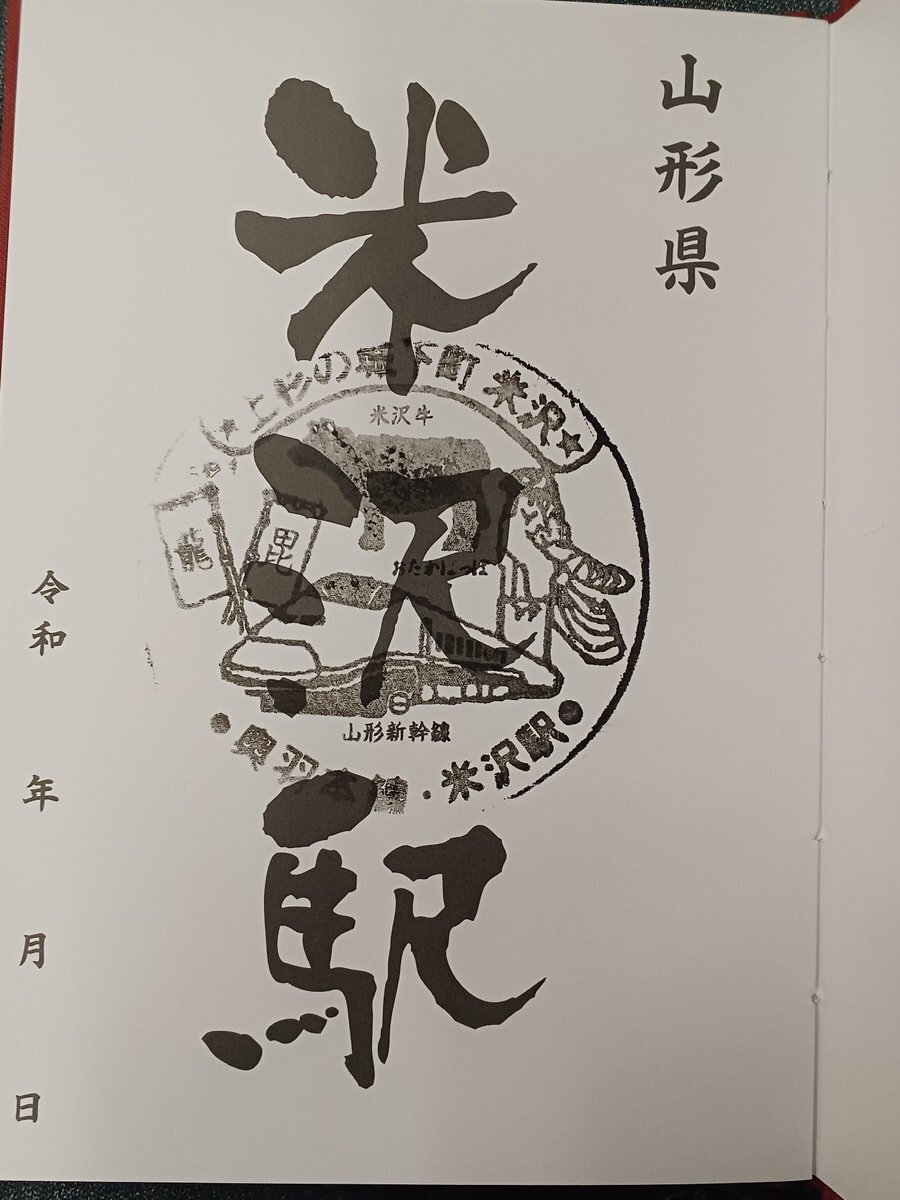 山形県
米沢駅
上杉の城下町 米沢
米沢牛
龍
毘
おたかぽっぽ
山形新幹線
奥羽本線・米沢駅
令和 年 月 日